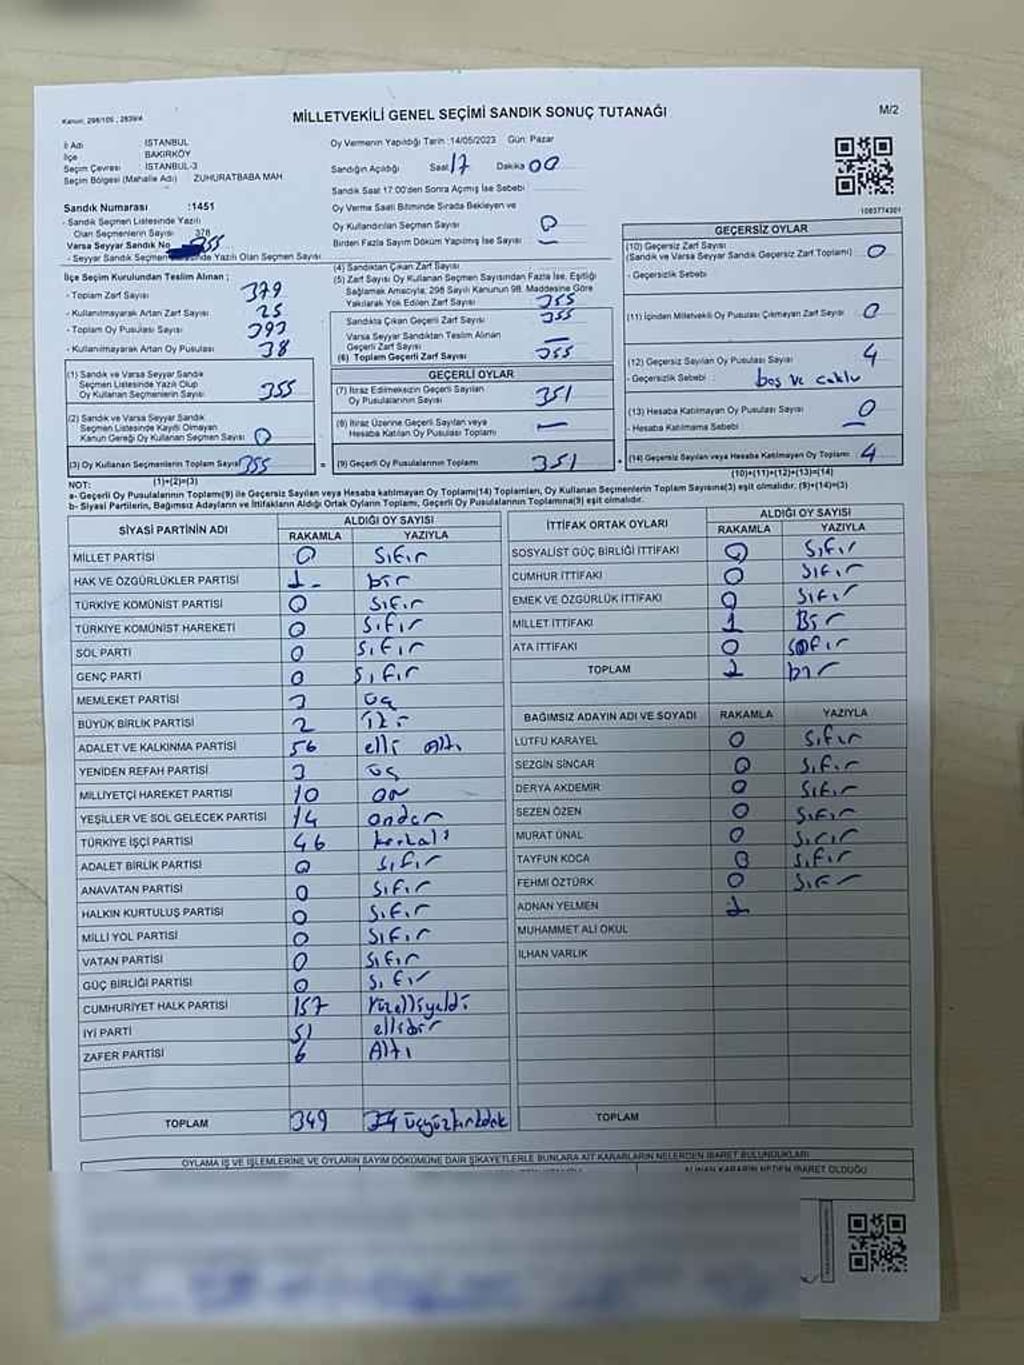 Kanun: 298/105 , 2839/4
MİLLETVEKİLİ GENEL SEÇİMİ SANDIK SONUÇ TUTANAĞI
M/2
İl Adı : İSTANBUL
İlçe : BAKIRKÖY
Seçim Çevresi : İSTANBUL-3
Seçim Bölgesi (Mahalle Adı) : ZUHURATBABA MAH.
Sandık Numarası :1451
- Sandık Seçmen Listesinde Yazılı
Olan Seçmenlerin Sayısı : 378
Varsa Seyyar Sandık No 355
- Seyyar Sandık Seçmen nde Yazılı Olan Seçmen Sayısı
Oy Vermenin Yapıldığı Tarih :14/05/2023 Gün: Pazar
Sandığın Açıldığı Saat 17 Dakika 00
Sandık Saat 17:00'den Sonra Açmış İse Sebebi :
Oy Verme Saati Bitiminde Sırada Bekleyen ve
Oy Kullandırılan Seçmen Sayısı : 0
Birden Fazla Sayım Döküm Yapılmış İse Sayısı : —
1083774301
İlçe Seçim Kurulundan Teslim Alınan ;
- Toplam Zarf Sayısı : 379
- Kullanılmayarak Artan Zarf Sayısı : 25
- Toplam Oy Pusulası Sayısı : 393
- Kullanılmayarak Artan Oy Pusulası : 38
(1) Sandık ve Varsa Seyyar Sandık
Seçmen Listesinde Yazılı Olup
Oy Kullanan Seçmenlerin Sayısı : 355
(2) Sandık ve Varsa Seyyar Sandık
Seçmen Listesinde Kayıtlı Olmayan
Kanun Gereği Oy Kullanan Seçmen Sayısı : 0
(3) Oy Kullanan Seçmenlerin Toplam Sayısı 355
(1)+(2)=(3)
(4) Sandıktan Çıkan Zarf Sayısı
(5) Zarf Sayısı Oy Kullanan Seçmen Sayısından Fazla İse, Eşitliği
Sağlamak Amacıyla, 298 Sayılı Kanunun 98. Maddesine Göre
Yakılarak Yok Edilen Zarf Sayısı : 355
Sandıkta Çıkan Geçerli Zarf Sayısı : 355
Varsa Seyyar Sandıktan Teslim Alınan
Geçerli Zarf Sayısı : —
(6) Toplam Geçerli Zarf Sayısı : 355
GEÇERLİ OYLAR
(7) İtiraz Edilmeksizin Geçerli Sayılan
Oy Pusulalarının Sayısı : 351
(8) İtiraz Üzerine Geçerli Sayılan veya
Hesaba Katılan Oy Pusulası Toplamı : —
= (9) Geçerli Oy Pusulalarının Toplamı : 351
GEÇERSİZ OYLAR
(10) Geçersiz Zarf Sayısı
(Sandık ve Varsa Seyyar Sandık Geçersiz Zarf Toplamı) : 0
- Geçersizlik Sebebi :
(11) İçinden Milletvekili Oy Pusulası Çıkmayan Zarf Sayısı : 0
(12) Geçersiz Sayılan Oy Pusulası Sayısı : 4
- Geçersizlik Sebebi : boş ve
(13) Hesaba Katılmayan Oy Pusulası Sayısı : 0
- Hesaba Katılmama Sebebi : —
+ (14) Geçersiz Sayılan veya Hesaba Katılmayan Oy Toplamı : 4
(10)+(11)+(12)+(13)=(14)
NOT:
a- Geçerli Oy Pusulalarının Toplamı(9) ile Geçersiz Sayılan veya Hesaba katılmayan Oy Toplamı(14) Toplamları, Oy Kullanan Seçmenlerin Toplam Sayısına(3) eşit olmalıdır. (9)+(14)=(3)
b- Siyasi Partilerin, Bağımsız Adayların ve İttifakların Aldığı Ortak Oyların Toplamı, Geçerli Oy Pusulalarının Toplamına(9) eşit olmalıdır.
SİYASİ PARTİNİN ADI ALDIĞI OY SAYISI
RAKAMLA YAZIYLA
MİLLET PARTİSİ 0 Sıfır
HAK VE ÖZGÜRLÜKLER PARTİSİ 1 bir
TÜRKİYE KOMÜNİST PARTİSİ 0 Sıfır
TÜRKİYE KOMÜNİST HAREKETİ 0 Sıfır
SOL PARTİ 0 Sıfır
GENÇ PARTİ 0 Sıfır
MEMLEKET PARTİSİ 3 üç
BÜYÜK BİRLİK PARTİSİ 2 iki
ADALET VE KALKINMA PARTİSİ 56 elli Altı
YENİDEN REFAH PARTİSİ 3 üç
MİLLİYETÇİ HAREKET PARTİSİ 10 on
YEŞİLLER VE SOL GELECEK PARTİSİ 14
TÜRKİYE İŞÇİ PARTİSİ 46
ADALET BİRLİK PARTİSİ 0 Sıfır
ANAVATAN PARTİSİ 0 Sıfır
HALKIN KURTULUŞ PARTİSİ 0 Sıfır
MİLLİ YOL PARTİSİ 0 Sıfır
VATAN PARTİSİ 0 Sıfır
GÜÇ BİRLİĞİ PARTİSİ 0 Sıfır
CUMHURİYET HALK PARTİSİ 157 Yüzelliyedi
İYİ PARTİ 51 ellibir
ZAFER PARTİSİ 6 Altı
TOPLAM 349
İTTİFAK ORTAK OYLARI ALDIĞI OY SAYISI
RAKAMLA YAZIYLA
SOSYALİST GÜÇ BİRLİĞİ İTTİFAKI 0 Sıfır
CUMHUR İTTİFAKI 0 Sıfır
EMEK VE ÖZGÜRLÜK İTTİFAKI 0 Sıfır
MİLLET İTTİFAKI 1 Bir
ATA İTTİFAKI 0 sıfır
TOPLAM 1 bir
BAĞIMSIZ ADAYIN ADI VE SOYADI RAKAMLA YAZIYLA
LÜTFÜ KARAYEL 0 Sıfır
SEZGİN SİNCAR 0 Sıfır
DERYA AKDEMİR 0 Sıfır
SEZEN ÖZEN 0 Sıfır
MURAT ÜNAL 0 Sıfır
TAYFUN KOCA 0 Sıfır
FEHMİ ÖZTÜRK 0 Sıfır
ADNAN YELMEN 1
MUHAMMET ALİ OKUL
İLHAN VARLIK
TOPLAM
OYLAMA İŞ VE İŞLEMLERİNE VE OYLARIN SAYIM DÖKÜMÜNE DAİR ŞİKAYETLERLE BUNLARA AİT KARARLARIN NELERDEN İBARET BULUNDUKLARI
ALINAN KARARIN NEDEN İBARET OLDUĞU